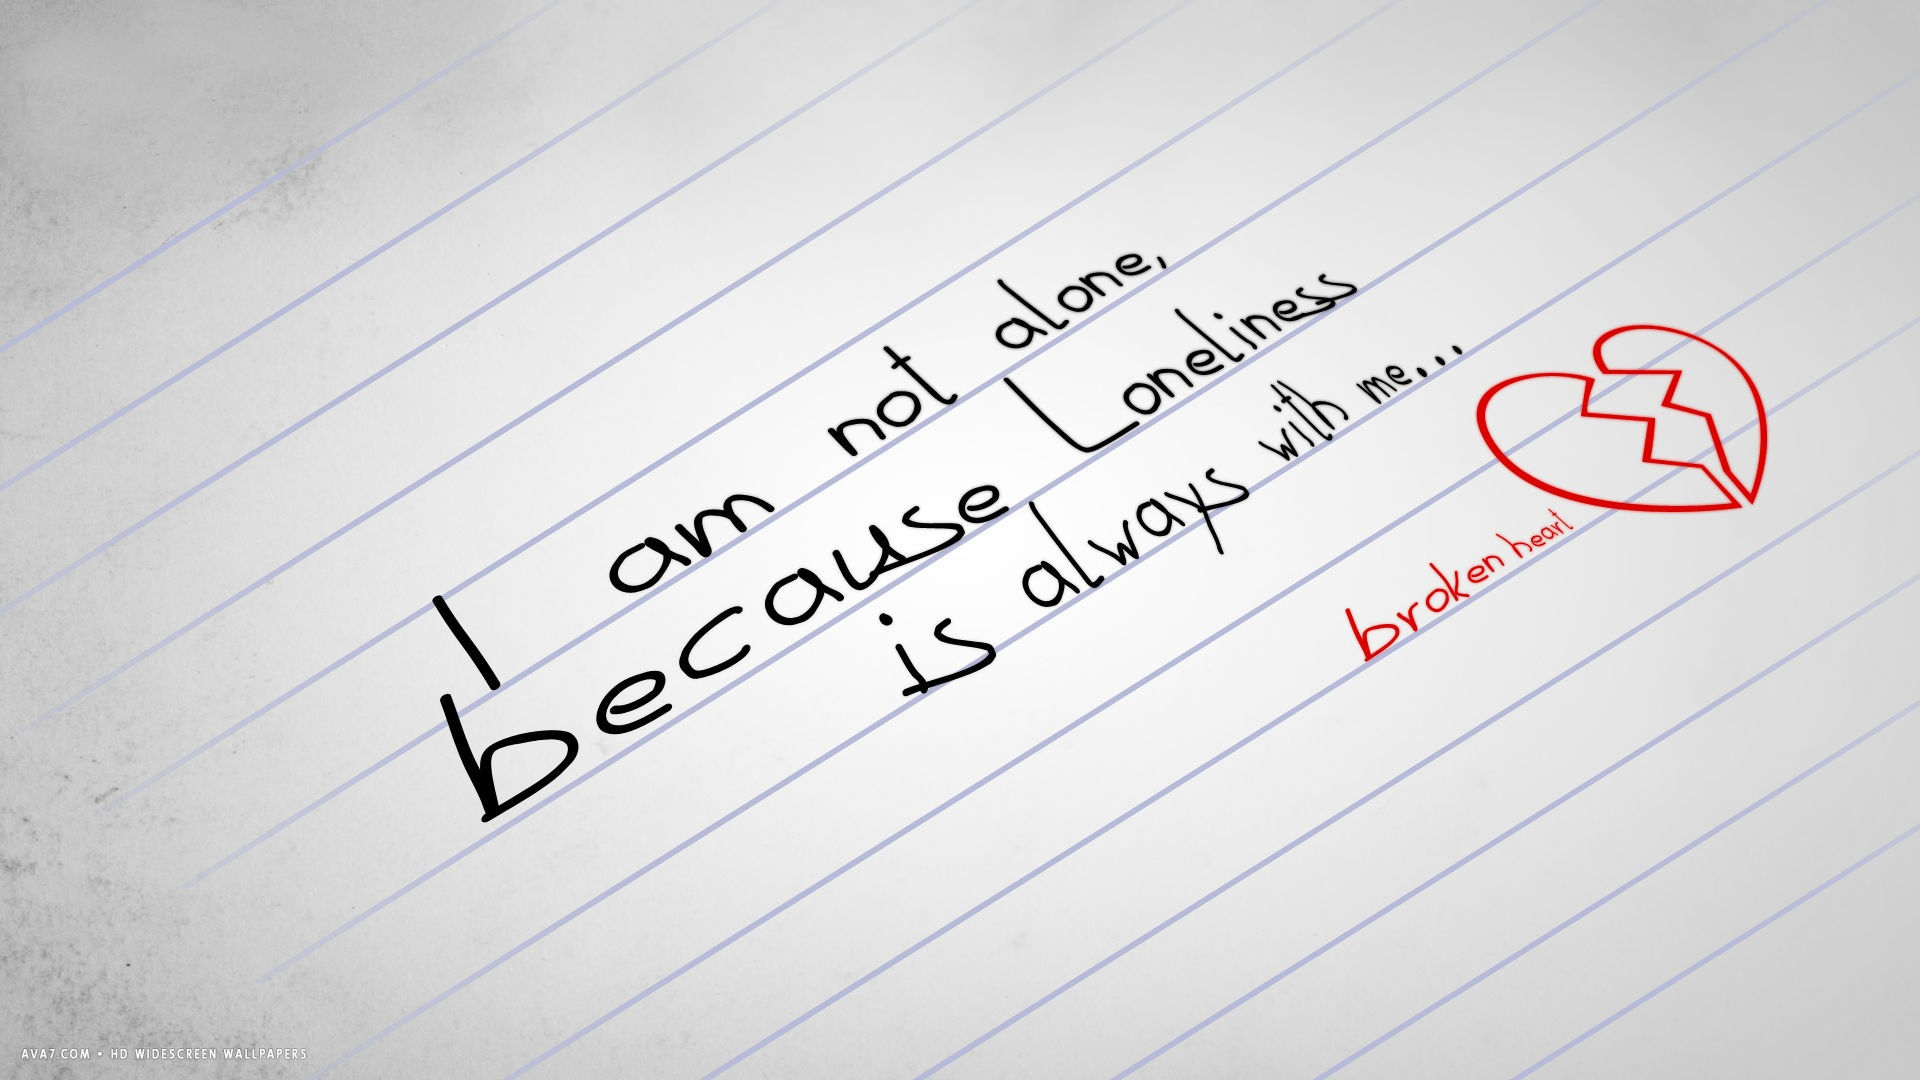 I am not alone,
because Loneliness
is always with me...
broken heart
AVA7.COM • HD WIDESCREEN WALLPAPERS